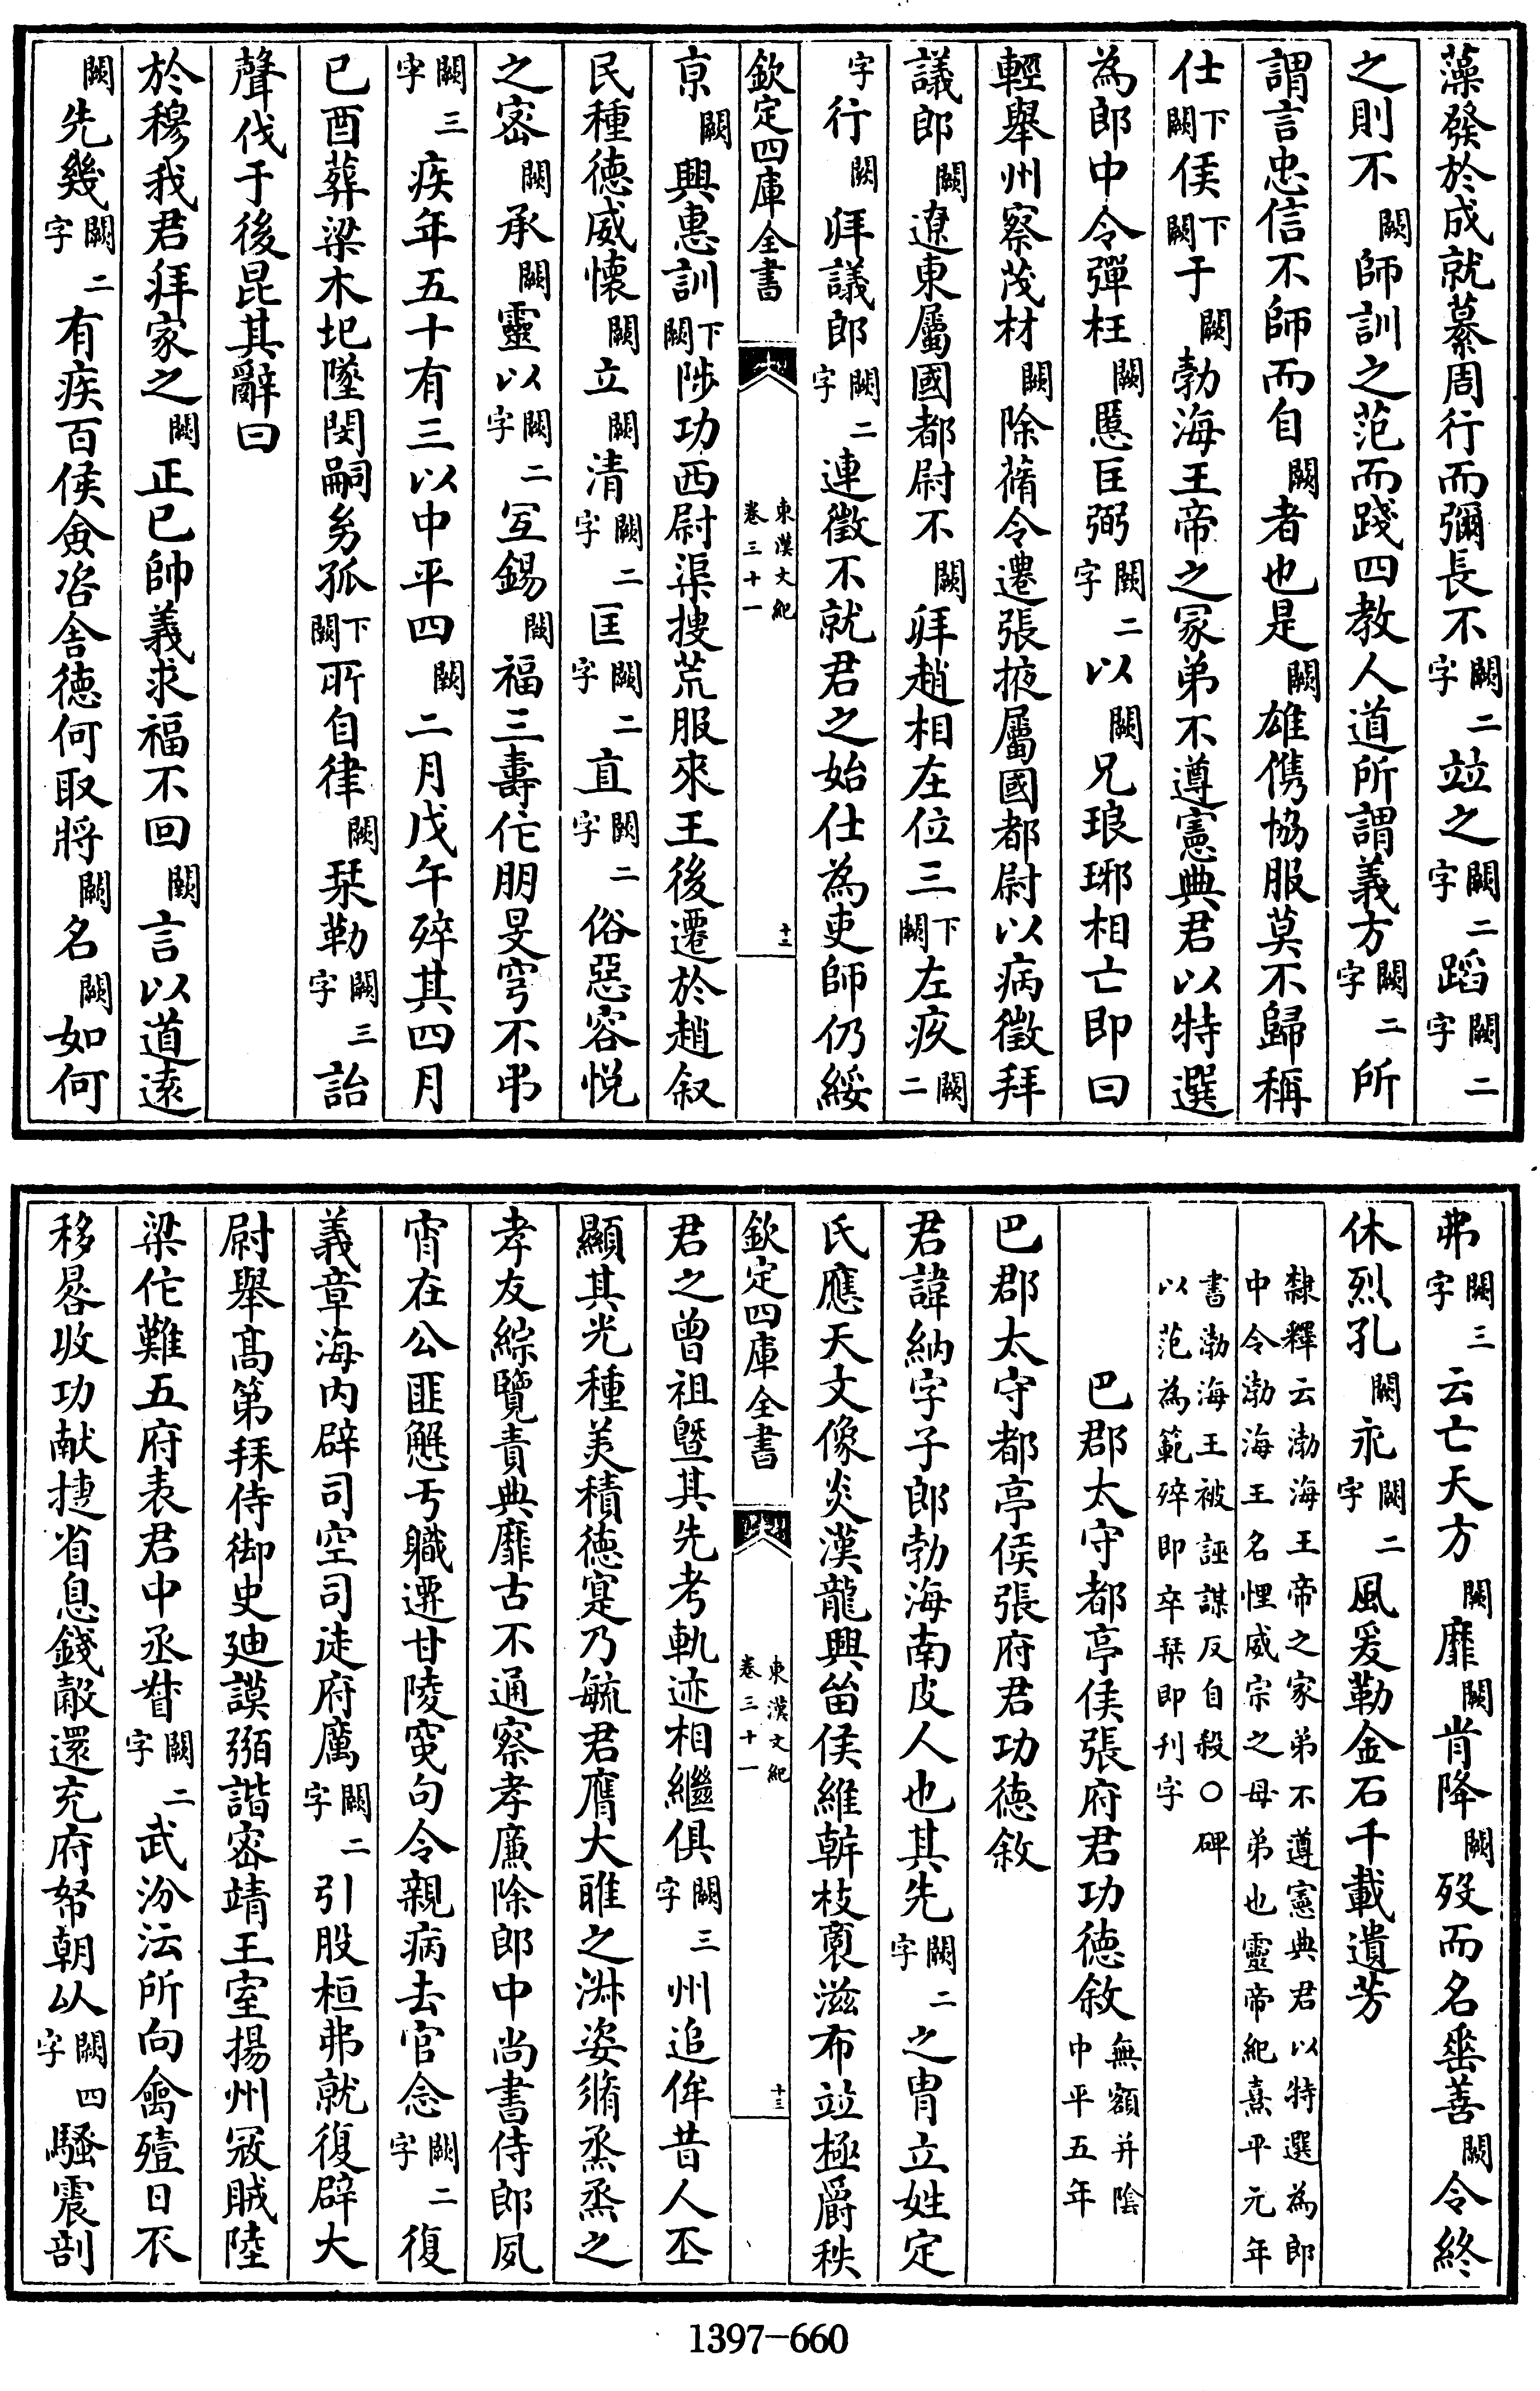 藻發於成就慕周行而彌長不闕二字竝之闕二字蹈闕二字
之則不闕師訓之范而踐四教人道所謂義方闕二字所
謂言忠信不師而自闕者也是闕雄儁協服莫不歸稱
仕下闕侯下闕于闕勃海王帝之冢弟不遵憲典君以特選
為郎中令彈枉闕慝匡弼闕二字以闕兄琅琊相亡即日
輕舉州察茂材闕除蓨令遷張掖屬國都尉以病徵拜
議郎闕遼東屬國都尉不闕拜趙相在位三下闕左疾闕二
字行闕拜議郎闕二字連徵不就君之始仕為吏師仍綏
欽定四庫全書
東漢文紀
卷三十一
十二
京闕興惠訓下闕陟功西尉渠搜荒服來王後遷於趙叙
民種德威懷闕立闕清闕二字匡闕二字直闕二字俗惡容悅
之密闕承闕靈以闕二字宜錫闕福三壽佗朋旻穹不弔
闕三字疾年五十有三以中平四闕二月戊午殚其四月
已酉葬梁木圯墜閔嗣㓜孤下闕所自律闕栞勒闕三字詒
聲伐于後昆其辭曰
於穆我君拜家之闕正已帥義求福不回闕言以道遠
闕先幾闕二字有疾百侯僉咨舍德何取將闕名闕如何
弗闕三字云亡天方闕靡闕肯降闕歿而名垂善闕令終
休烈孔闕永闕二字風爰勒金石千載遺芳
隸釋云渤海王帝之家弟不遵憲典君以特選為郎
中令渤海王名悝威宗之母弟也靈帝紀熹平元年
書渤海王被誣謀反自殺○碑
以范為範殚即卒栞即刊字
巴郡太守都亭侯張府君功德敘無額并陰中平五年
巴郡太守都亭侯張府君功德敘
君諱納字子郎勃海南皮人也其先闕二字之胄立姓定
氏應天文像炎漢龍興畄侯維幹枝裔滋布竝極爵秩
欽定四庫全書
東漢文紀
卷三十一
十三
君之曾祖暨其先考軌迹相繼俱闕三字州追侔昔人丕
顯其光種美積德寔乃毓君膺大雅之淋姿脩烝烝之
孝友綜覽責典靡古不通察孝廉除郎中尚書侍郎夙
宵在公匪懈丂職遷甘陵寃句令親病去官念闕二字復
義章海内辟司空司徒府厲闕二字引股桓弗就復辟大
尉舉高第拜侍御史廸謨㢸諧密靖王室揚州㓂賊陸
梁佗難五府表君中丞督闕二字武汾沄所向禽殪日不
移晷收功献捷省息錢㪚還充府帑朝以闕四字騷震剖
1397-660